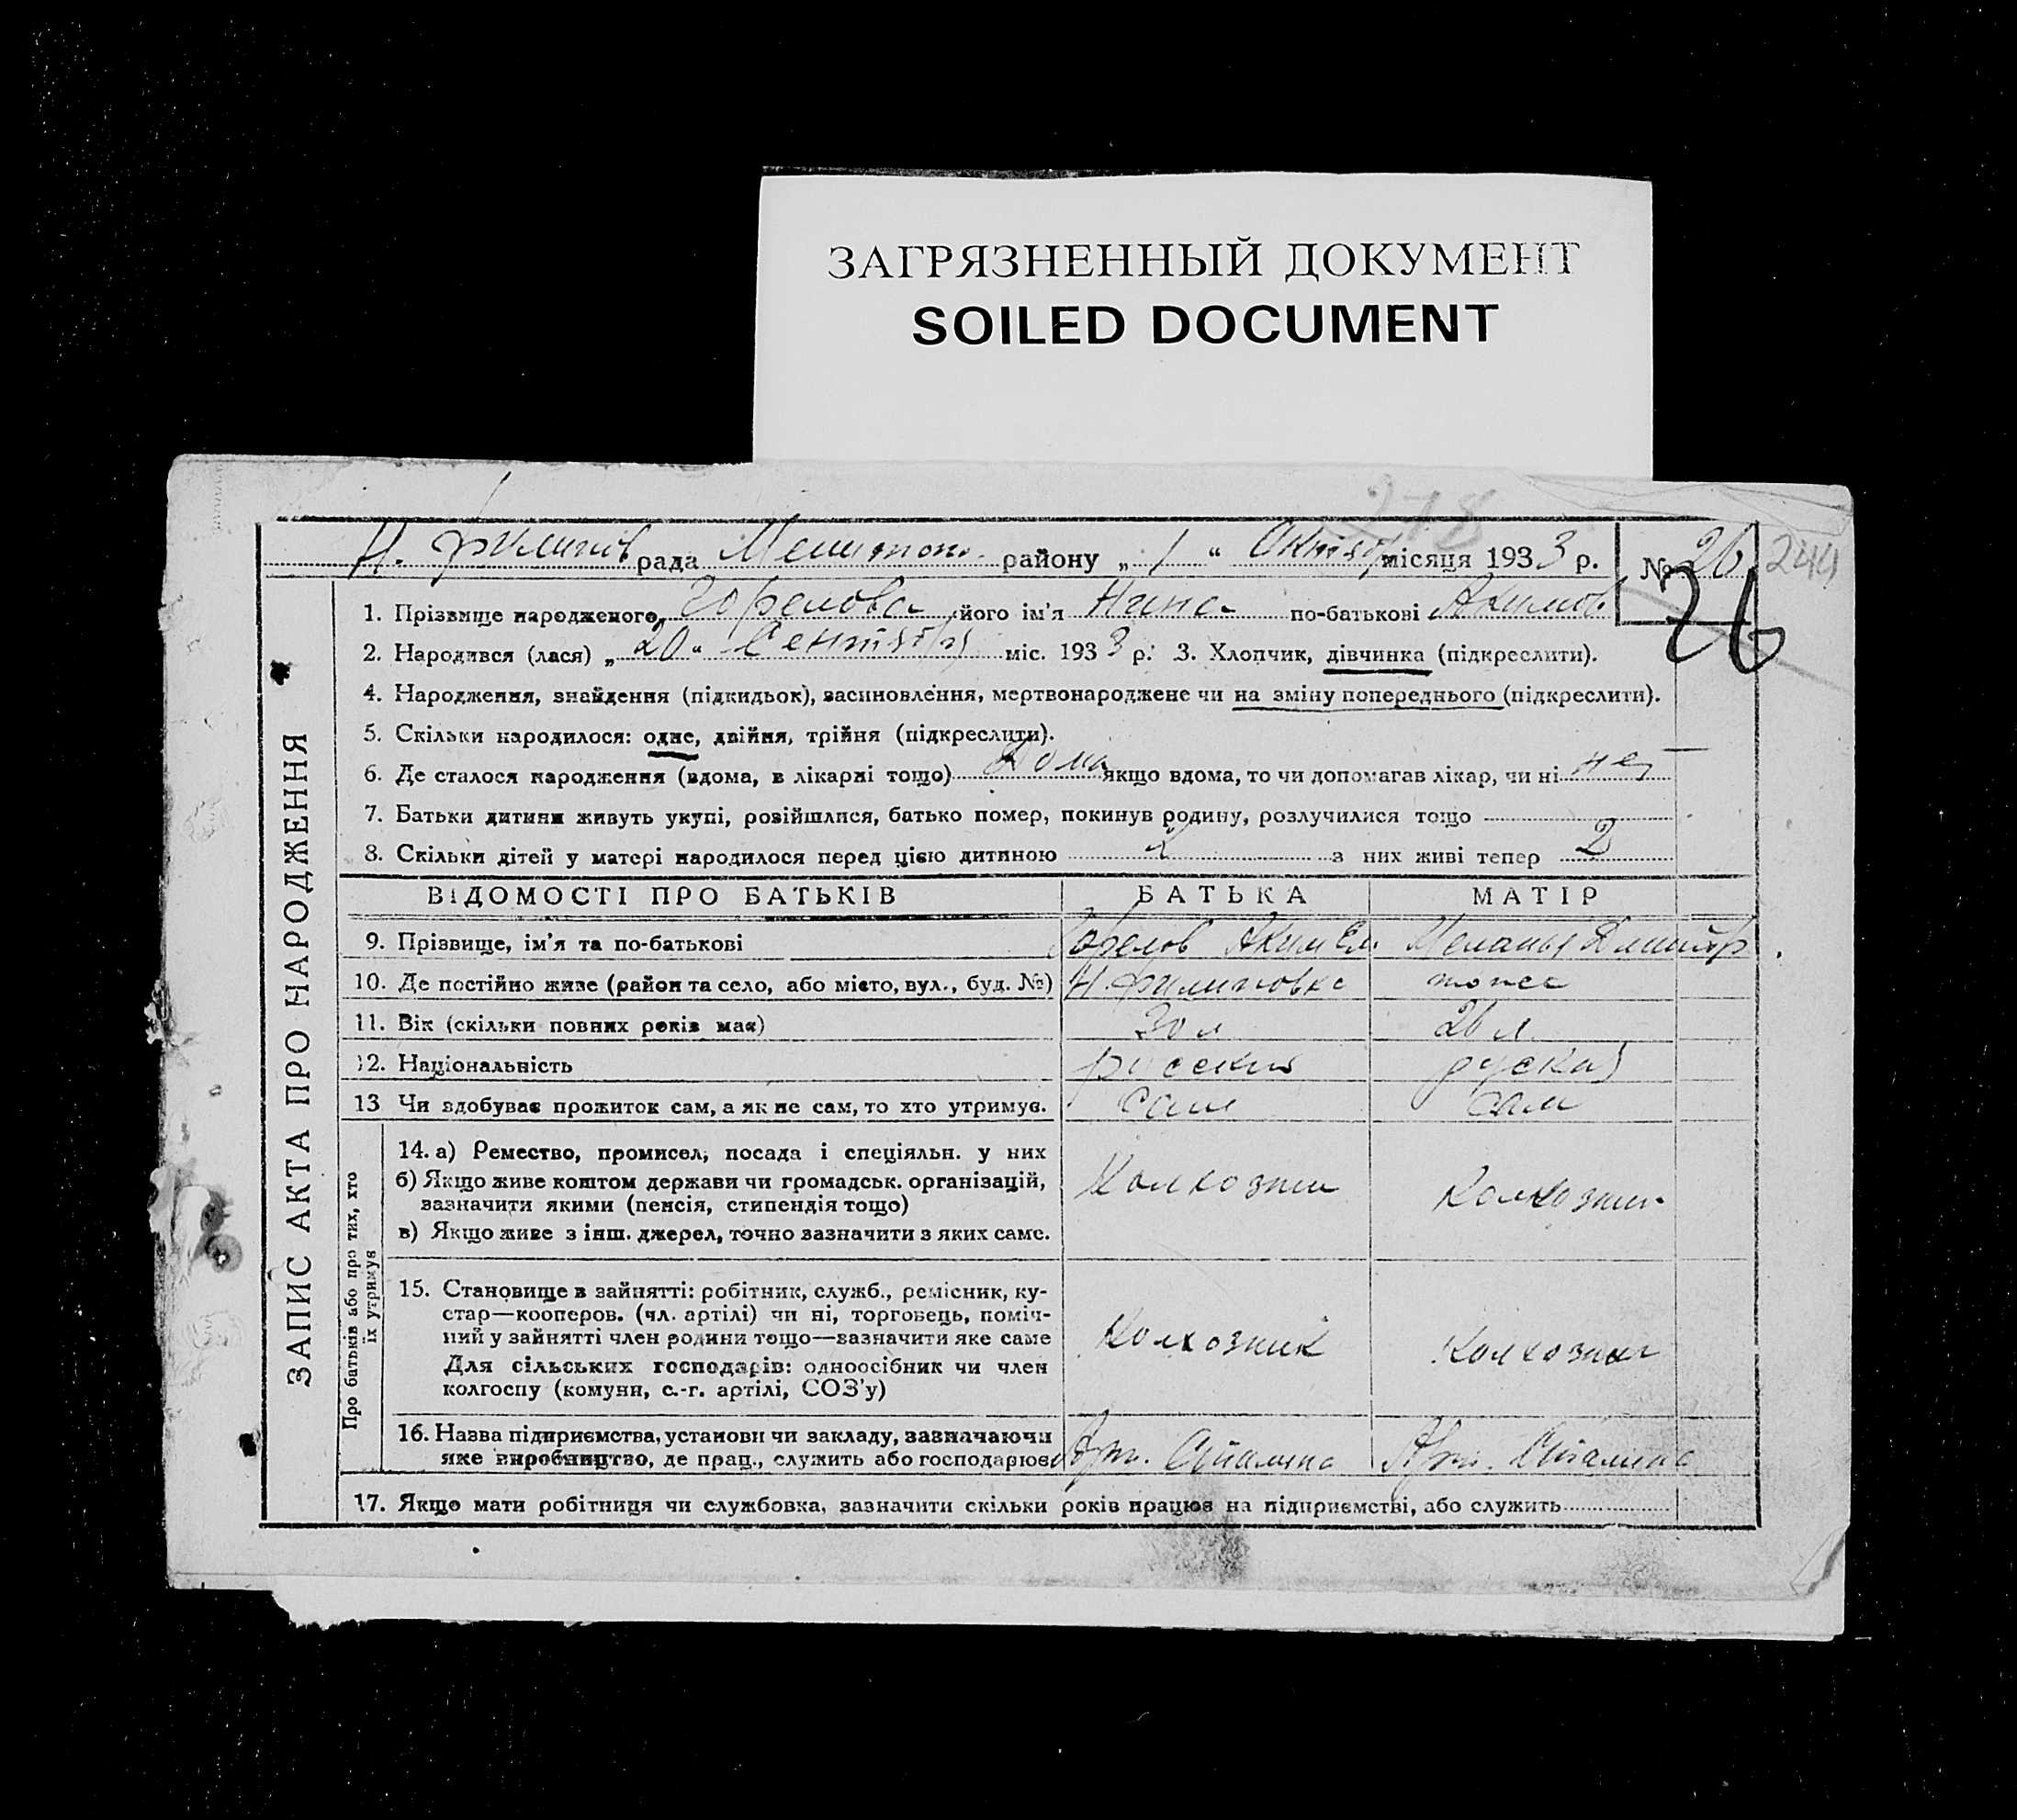 ЗАГРЯЗНЕННЫЙ ДОКУМЕНТ
SOILED DOCUMENT
278
Н. Филипов рада Мелитоп. району „ 1 “ Октября місяця 1933 р. № 26 244
26
1. Прізвище народженого, Горелова його ім'я Нина по-батькові Акимов
2. Народився (лася) „ 20 “ Сентября міс. 1933 р. 3. Хлопчик, дівчинка (підкреслити).
4. Народження, знайдення (підкидьок), засиновлення, мертвонароджене чи на зміну попереднього (підкреслити).
5. Скільки народилося: одне, двійня, трійня (підкреслити).
6. Де сталося народження (вдома, в лікарні тощо) Дома якщо вдома, то чи допомагав лікар, чи ні нет
7. Батьки дитини живуть укупі, розійшлися, батько помер, покинув родину, розлучилися тощо
8. Скільки дітей у матері народилося перед цією дитиною 2 з них живі тепер 2
ЗАПИС АКТА ПРО НАРОДЖЕННЯ
ВІДОМОСТІ ПРО БАТЬКІВ БАТЬКА МАТІР
9. Прізвище, ім'я та по-батькові Горелов Аким Ел. Меланья Дмитр
10. Де постійно живе (район та село, або місто, вул., буд. №) Н. Филиповка
11. Вік (скільки повних років має) 30 л 26 л
12. Національність русский руская
13 Чи здобуває прожиток сам, а як не сам, то хто утримує. сам сам
Про батьків або про тих, хто
їх утримує
14. а) Ремество, промисел, посада і спеціяльн. у них
б) Якщо живе коштом держави чи громадськ. організацій,
зазначити якими (пенсія, стипендія тощо)
в) Якщо живе з інш. джерел, точно зазначити з яких саме.
Колхозни Колхозни
15. Становище в зайнятті: робітник, служб., ремісник, ку-
стар—кооперов. (чл. артілі) чи ні, торговець, поміч-
ний у зайнятті член родини тощо—зазначити яке саме
Для сільських господарів: одноосібник чи член
колгоспу (комуни, с.-г. артілі, СОЗ'у)
Колхозник Колхозниг
16. Назва підприємства, установи чи закладу, зазначаючи
яке виробництво, де прац., служить або господарює Арт. Сталина Арт. Сталина
17. Якщо мати робітниця чи службовка, зазначити скільки років працює на підприємстві, або служить